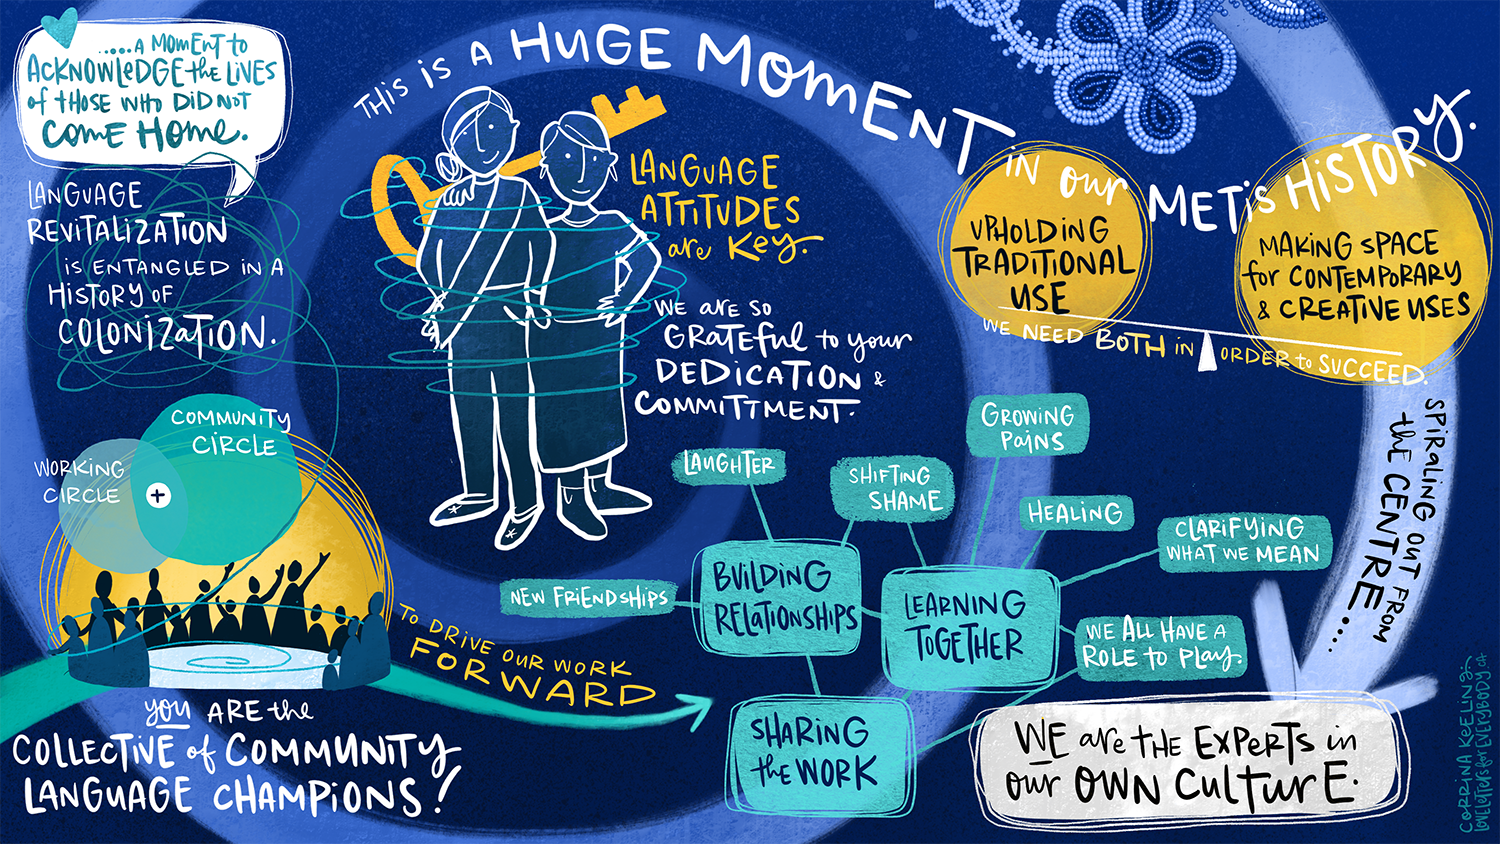 .....A MOMENT to
ACKNOWLEDGE the LIVES
of those who DID NOT
COME HOME.
LANGUAGE
REVITALIZATION
IS ENTANGLED IN A
HISTORY OF
COLONIZATION.
THIS IS A HUGE MOMENT IN OUR METIS HISTORY.
LANGUAGE
ATTITUDES
are KEY.
WE ARE SO
GRATEFUL to your
DEDICATION &
COMMITTMENT.
UPHOLDING
TRADITIONAL
USE
MAKING SPACE
for CONTEMPORARY
& CREATIVE USES
WE NEED BOTH IN ORDER to SUCCEED.
SPIRALING OUT FROM
the CENTRE...
COMMUNITY
CIRCLE
WORKING
CIRCLE
+
TO DRIVE OUR WORK
FORWARD
YOU ARE the
COLLECTIVE of COMMUNITY
LANGUAGE CHAMPIONS!
LAUGHTER
SHIFTING
SHAME
GROWING
PAINS
HEALING
CLARIFYING
WHAT WE MEAN
NEW FRIENDSHIPS
BUILDING
RELATIONSHIPS
LEARNING
TOGETHER
WE ALL HAVE A
ROLE to PLAY.
SHARING
the WORK
WE are the EXPERTS in
our OWN CULTURE.
CORRINA KEELING
LOVELETTERSforEVERYBODY.CA